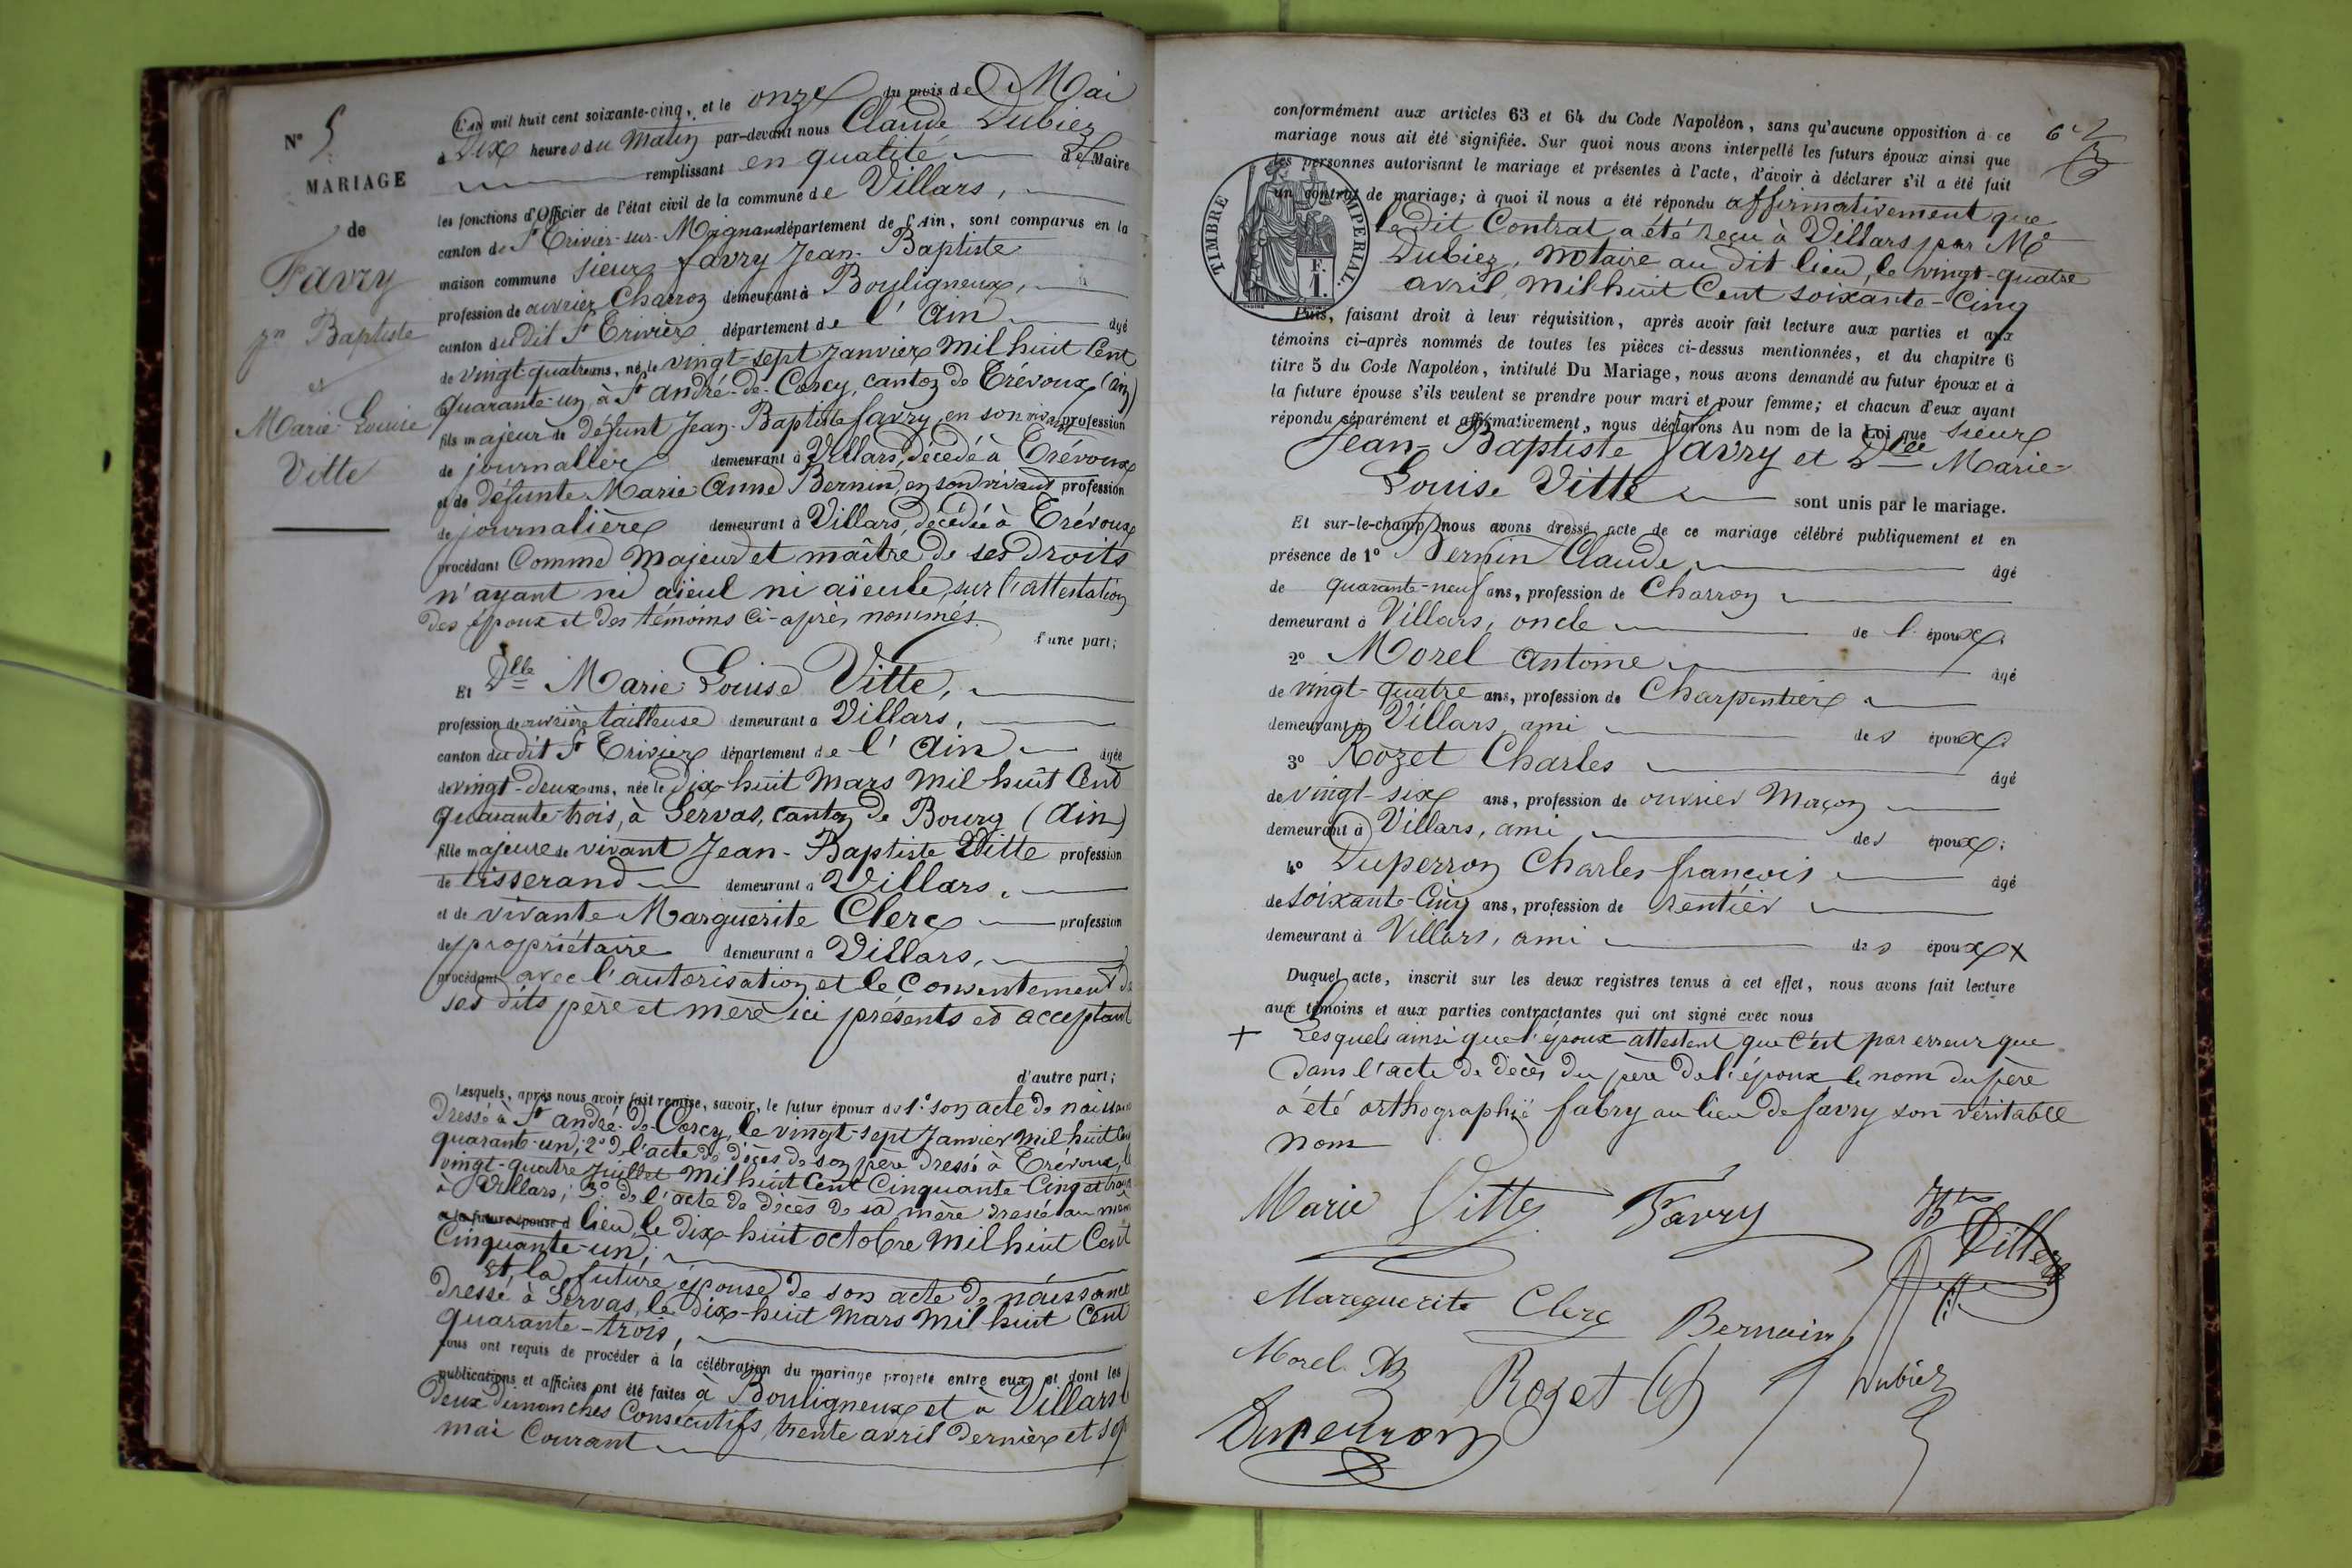 N° 5
MARIAGE
de
Favry
Jn Baptiste
et
Marie Louise
Vitte
L'an mil huit cent soixante-cinq, et le onze du mois de Mai
à Dix heures du Matin par-devant nous Claude Dubiez
remplissant en qualité de Maire
les fonctions d'Officier de l'état civil de la commune de Villars,
canton de St Trivier-sur-Moignans département de l'Ain, sont comparus en la
maison commune Sieur favry Jean-Baptiste
profession de ouvrier Charron demeurant à Bouligneux,
canton du dit St Trivier département de l'Ain âgé
de vingt-quatre ans, né le vingt-sept Janvier Mil huit Cent
quarante-un, à St andré-de-Corcy, canton de Trévoux (ain)
fils majeur de défunt Jean-Baptiste favry, en son vivant profession
de journalier demeurant à Villars, décédé à Trévoux
et de défunte Marie Anne Bernin, en son vivant profession
de journalière demeurant à Villars, décédée à Trévoux
procédant Comme Majeur et maître de ses droits
n'ayant ni aïeul ni aïeule, sur l'attestation
des époux et des témoins Ci-après nommés.
d'une part;
Et Dlle Marie Louise Vitte,
profession de ouvrière tailleuse demeurant à Villars,
canton du dit St Trivier département de l'Ain âgée
de vingt-deux ans, née le dix-huit Mars Mil huit Cent
quarante-trois, à Servas, canton de Bourg (Ain)
fille majeure de vivant Jean-Baptiste Vitte profession
de tisserand demeurant à Villars,
et de vivante Marguerite Clerc profession
de propriétaire demeurant à Villars,
procédant avec l'autorisation et le Consentement de
ses dits père et mère ici présents et acceptant
d'autre part;
Lesquels, après nous avoir fait remise, savoir, le futur époux de 1° son acte de naissance
dressé à St andré-de-Corcy, le vingt-sept Janvier Mil huit Cent
quarante-un; 2° de l'acte de décès de son père dressé à Trévoux, le
vingt-quatre Juillet Mil huit Cent Cinquante Cinq et
à Villars; 3° de l'acte de décès de sa mère dressé au même
a la future épouse d lieu, le dix-huit octobre Mil huit Cent
Cinquante-un;
Et la future épouse de son acte de naissance
dressé à Servas, le dix-huit Mars Mil huit Cent
quarante-trois,
nous ont requis de procéder à la célébration du mariage projeté entre eux et dont les
publications et affiches ont été faites à Bouligneux et à Villars
deux dimanches Consécutifs, trente avril dernier et sept
mai Courant
conformément aux articles 63 et 64 du Code Napoléon, sans qu'aucune opposition à ce
mariage nous ait été signifiée. Sur quoi nous avons interpellé les futurs époux ainsi que
les personnes autorisant le mariage et présentes à l'acte, d'avoir à déclarer s'il a été fait
un contrat de mariage; à quoi il nous a été répondu affirmativement que
le dit Contrat a été reçu à Villars par Me
Dubiez, notaire au dit lieu, le vingt-quatre
avril, Mil huit Cent soixante-Cinq
TIMBRE IMPERIAL.
F.
1.
Puis, faisant droit à leur réquisition, après avoir fait lecture aux parties et aux
témoins ci-après nommés de toutes les pièces ci-dessus mentionnées, et du chapitre 6
titre 5 du Code Napoléon, intitulé Du Mariage, nous avons demandé au futur époux et à
la future épouse s'ils veulent se prendre pour mari et pour femme; et chacun d'eux ayant
répondu séparément et affirmativement, nous déclarons Au nom de la Loi que Sieur
Jean-Baptiste favry et Dlle Marie-
Louise Vitte sont unis par le mariage.
Et sur-le-champ nous avons dressé acte de ce mariage célébré publiquement et en
présence de 1° Bernin Claude, âgé
de quarante-neuf ans, profession de Charron
demeurant à Villars, oncle de l'époux;
2° Morel antoine âgé
de vingt-quatre ans, profession de Charpentier
demeurant à Villars, ami des époux;
3° Rozet Charles âgé
de vingt-six ans, profession de ouvrier Maçon
demeurant à Villars, ami des époux;
4° Duperron Charles françois âgé
de soixante-Cinq ans, profession de rentier
demeurant à Villars, ami des époux +
Duquel acte, inscrit sur les deux registres tenus à cet effet, nous avons fait lecture
aux témoins et aux parties contractantes qui ont signé avec nous
+ Lesquels ainsi que l'époux attestent que C'est par erreur que
dans l'acte de décès du père de l'époux le nom du père
a été orthographié fabry au lieu de favry son véritable
nom
Marie Vitte Favry Bte Vitte
Mareguerite Clerc Bernin
Morel Rozet Ch Dubiez
Duperron